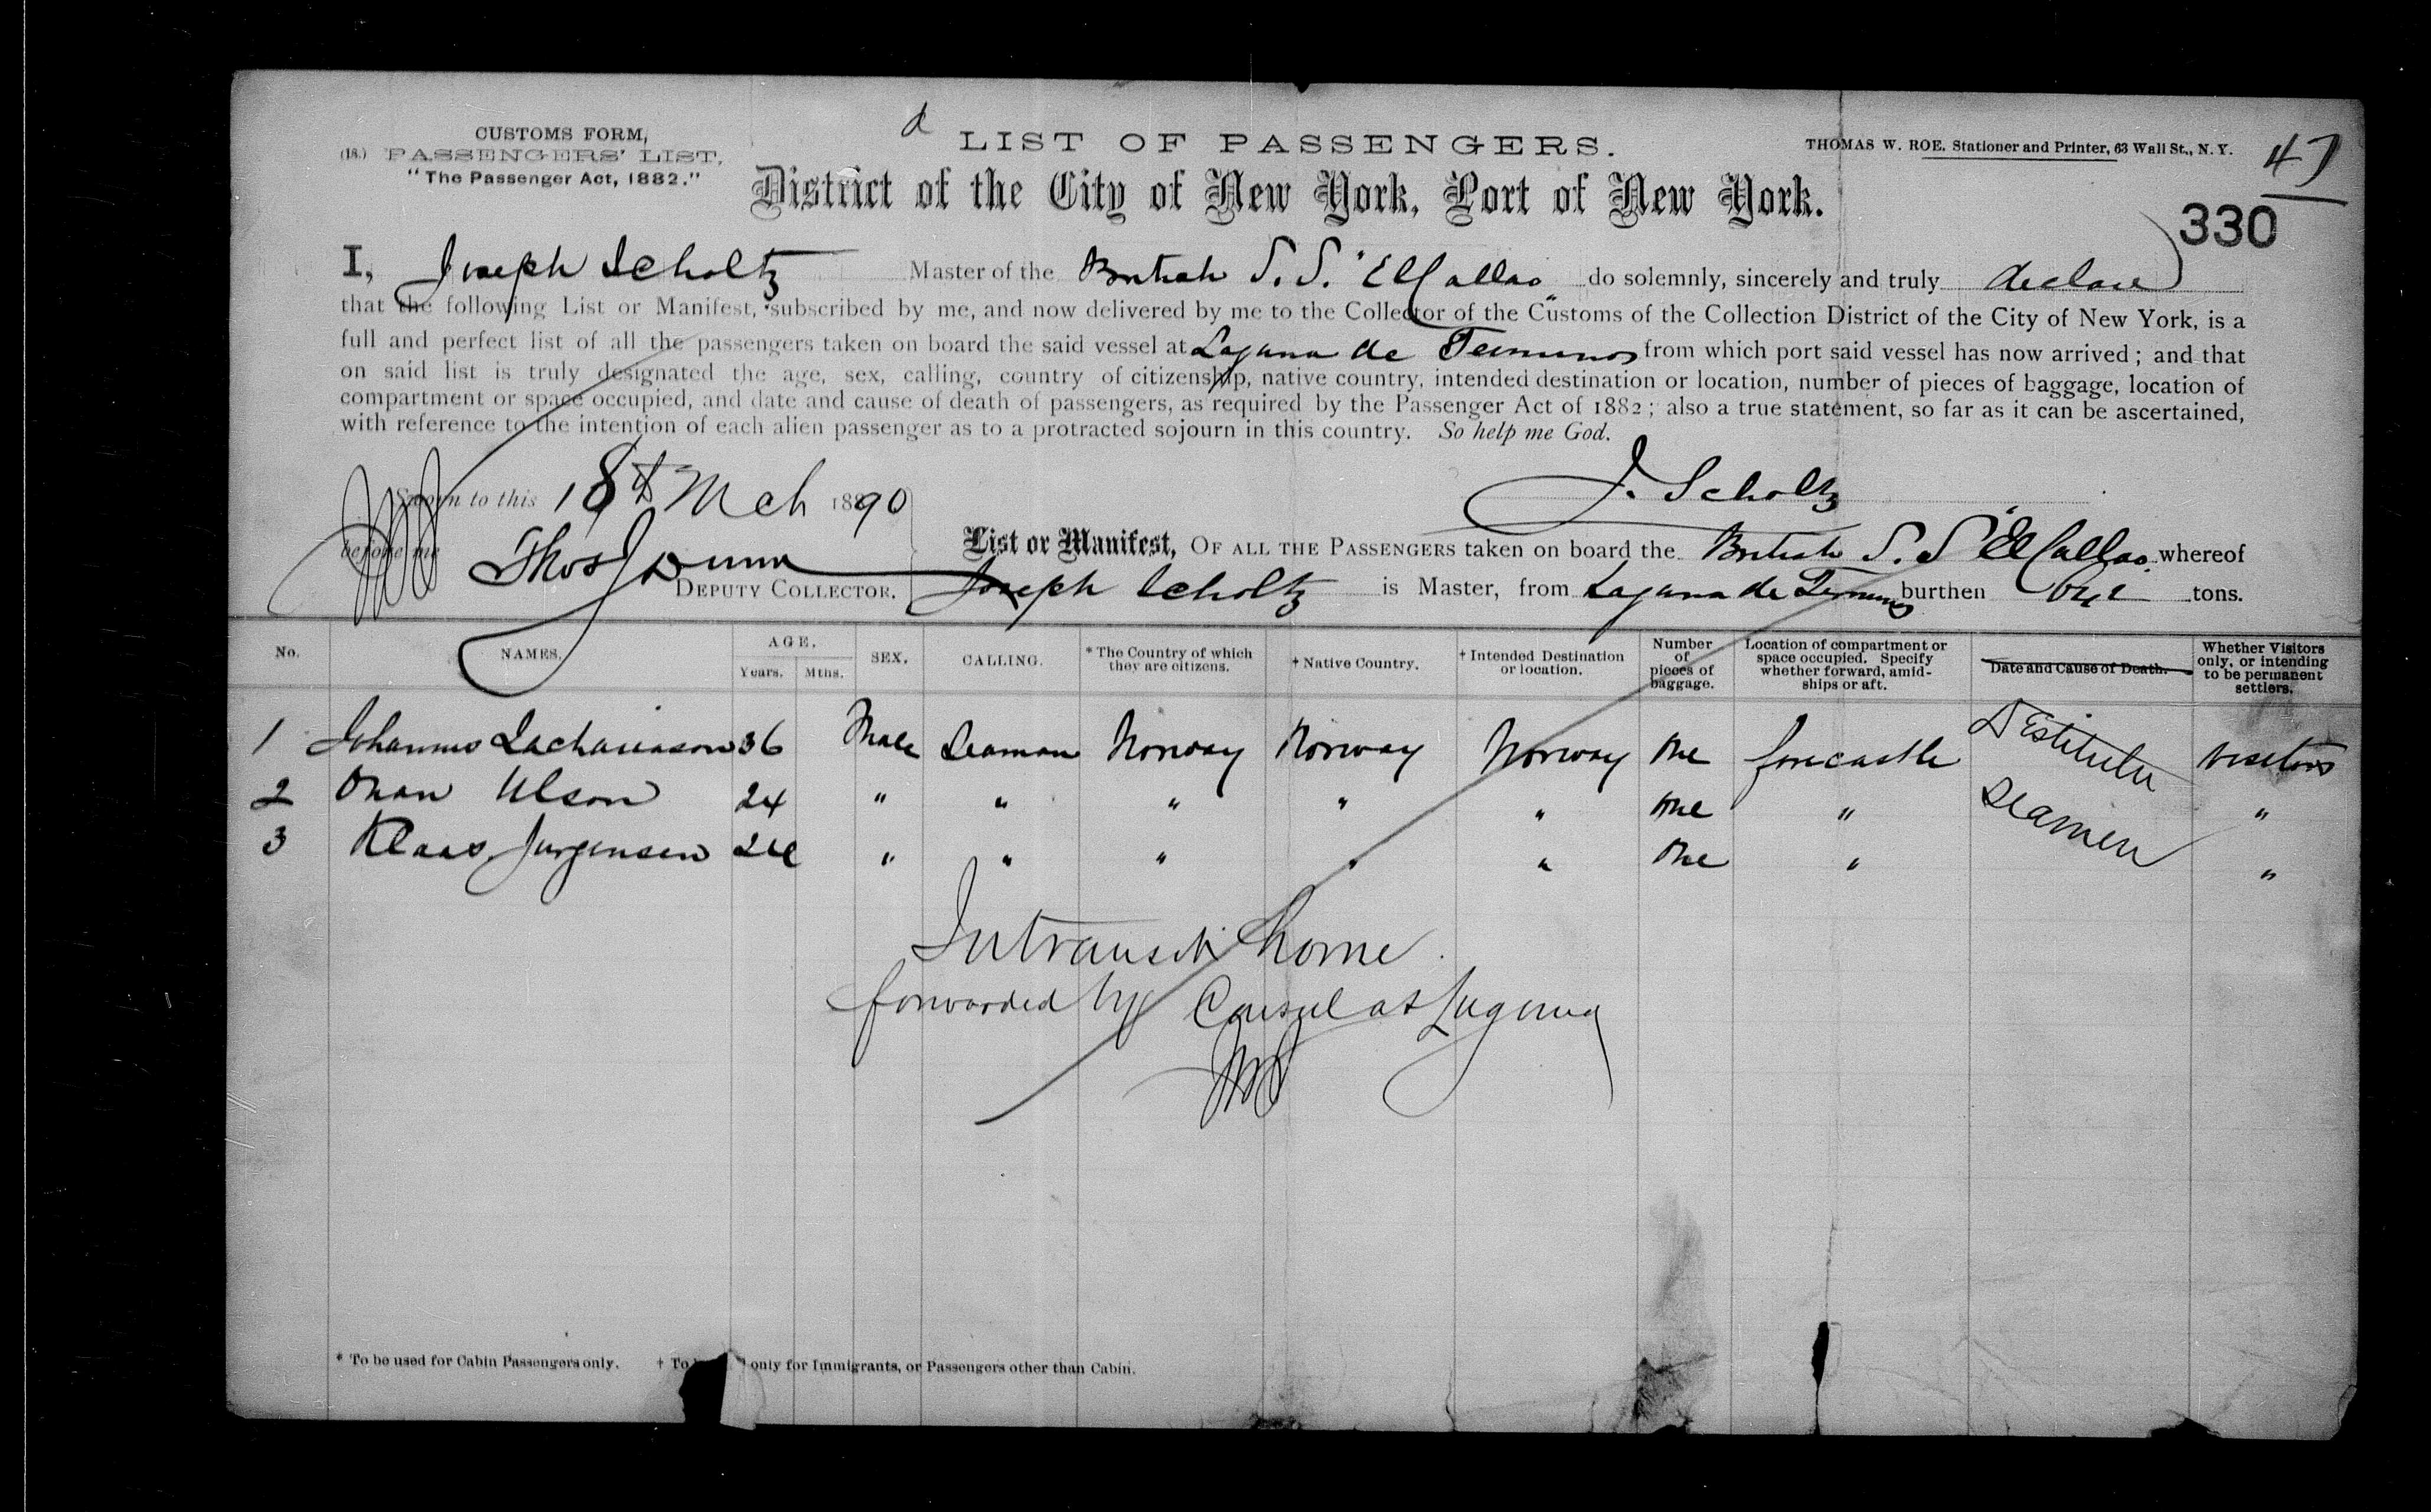 CUSTOMS FORM,
(18.) PASSENGERS' LIST,
"The Passenger Act, 1882."
d
LIST OF PASSENGERS.
THOMAS W. ROE, Stationer and Printer, 63 Wall St., N. Y.
47
District of the City of New York, Port of New York.
330
I, Joseph Scholtz Master of the British S. S. "El Callao" do solemnly, sincerely and truly declare
that the following List or Manifest, subscribed by me, and now delivered by me to the Collector of the Customs of the Collection District of the City of New York, is a
full and perfect list of all the passengers taken on board the said vessel at Laguna de Terminos from which port said vessel has now arrived; and that
on said list is truly designated the age, sex, calling, country of citizenship, native country, intended destination or location, number of pieces of baggage, location of
compartment or space occupied, and date and cause of death of passengers, as required by the Passenger Act of 1882; also a true statement, so far as it can be ascertained,
with reference to the intention of each alien passenger as to a protracted sojourn in this country. So help me God.
Sworn to this 18th Mch 1890
J. Scholtz
before me Thos J Dunn
DEPUTY COLLECTOR.
List or Manifest, OF ALL THE PASSENGERS taken on board the British S. S "El Callao" whereof
Joseph Scholtz is Master, from Laguna de Terminos burthen tons.
No. NAMES. AGE. Years. Mths. SEX. CALLING. * The Country of which they are citizens. † Native Country. † Intended Destination or location. Number of pieces of baggage. Location of compartment or space occupied. Specify whether forward, amidships or aft. Date and Cause of Death. Whether Visitors only, or intending to be permanent settlers.
1 Johannes Zachariason 36 Male Seaman Norway Norway Norway One forecastle Destitute visitors
2 Olson 24 " " " " " one " Seamen "
3 Klaas Jurgensen 24 " " " " " One " "
In transit home
forwarded by Consul at Laguna
* To be used for Cabin Passengers only. † To only for Immigrants, or Passengers other than Cabin.